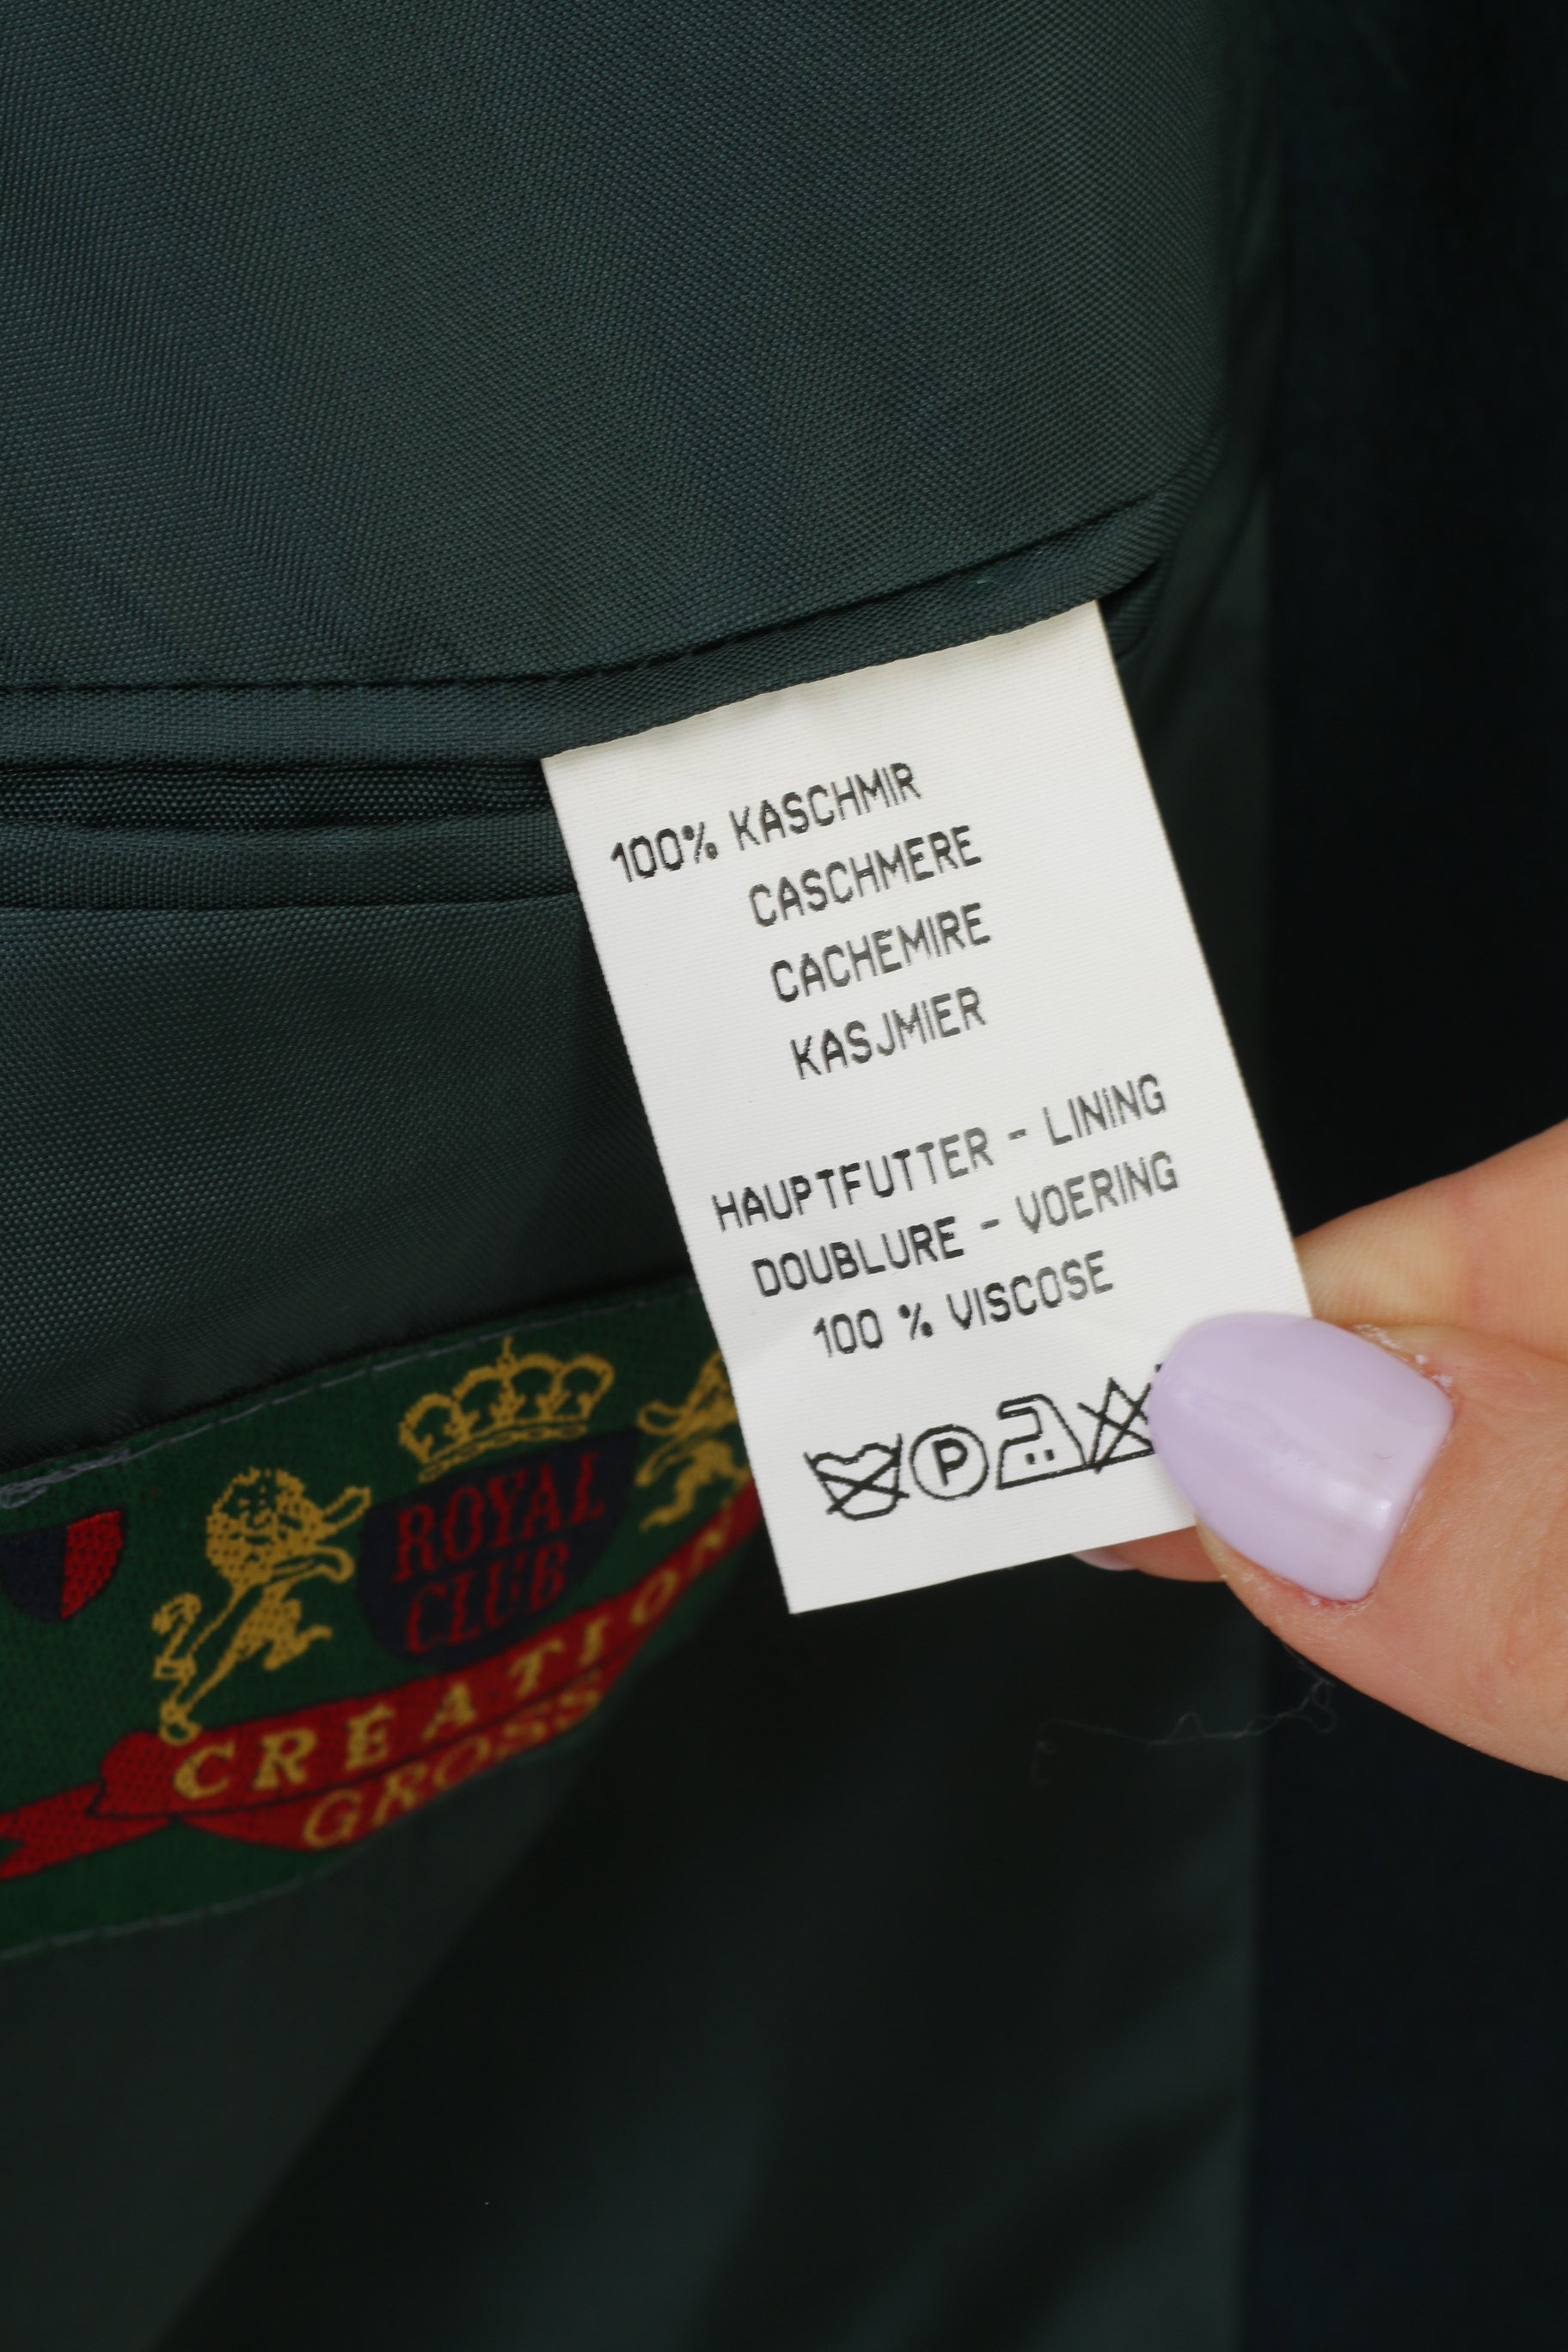 100% KASCHMIR
CASCHMERE
CACHEMIRE
KASJMIER
HAUPTFUTTER - LINING
DOUBLURE - VOERING
100 % VISCOSE
P
ROYAL
CLUB
CRÉATION
GROSS